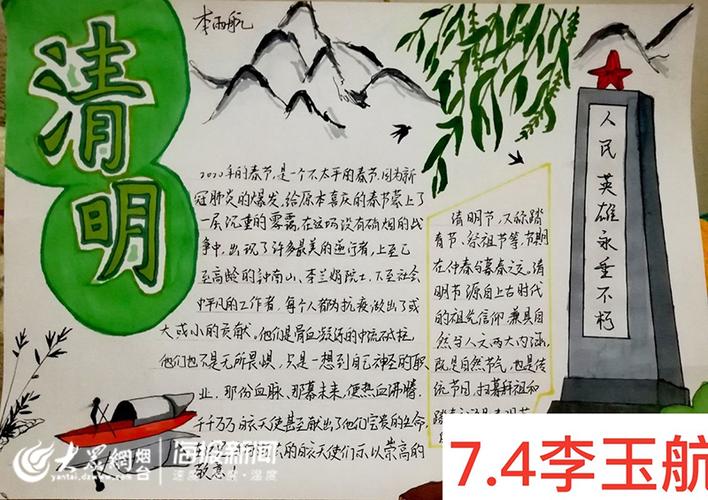 清明
李雨航
2020年的春节,是一个不太平的春节,因为新
冠肺炎的爆发,给原本喜庆的春节蒙上了
一层沉重的雾霭,在这场没有硝烟的战
争中,出现了许多最美的逆行者,上至已
至高龄的钟南山、李兰娟院士,下至社会
中平凡的工作者,每个人都为抗疫做出了或
大或小的贡献。他们是骨血凝练的中流砥柱,
他们也不是无所畏惧,只是一想到自己神圣的职
业,那份血脉、那幕未来,便热血沸腾。
千千万万白衣天使甚至献出了他们宝贵的生命,
的白衣天使们示以崇高的
致意
清明节,又称踏
青节、祭祖节等,节期
在仲春与暮春之交。清
明节源自上古时代
的祖先信仰,兼具自
然与人文两大内涵,
既是自然节气,也是传
统节日,扫墓拜祖和
人民英雄永垂不朽
大众网 烟台
yantai.dzwww.com
海报新闻
7.4李玉航